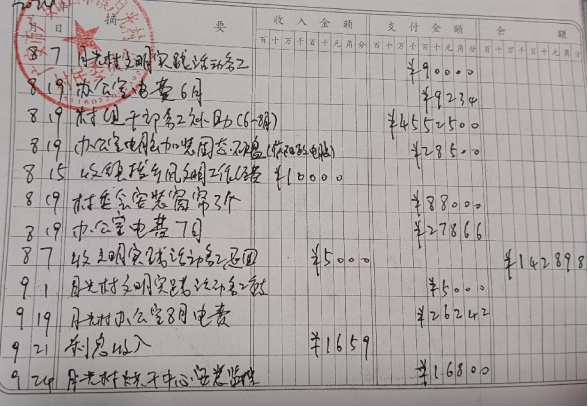 月 日 摘 要 收入金额 支付金额 余额
百十万千百十元角分 百十万千百十元角分 百十万千百十元角分
8 7 月光村文明实践活动务工 ¥90000
8 19 办公室电费6月 ¥9234
8 19 村组干部务工补助(6-8月) ¥4552500
8 19 办公室电脑加装固态硬盘 ¥28500
8 15 收 文明工作经费 ¥10000
8 19 村委会安装窗帘3个 ¥88000
8 19 办公室电费7月 ¥27866
8 7 收文明实践活动务工退回 ¥5000 ¥142898
9 1 月光村文明实践活动务工 ¥5000
9 19 月光村办公室8月电费 ¥26242
9 21 利息收入 ¥1659
9 24 月光村烘干中心安装监控 ¥16800